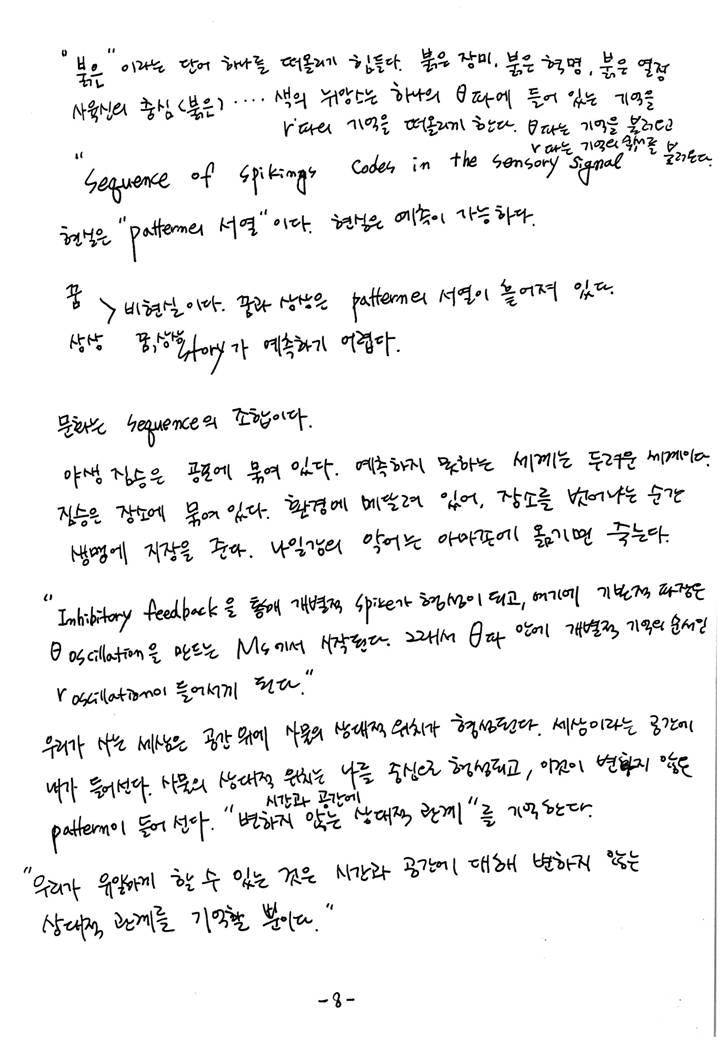 "붉은"이라는 단어 하나를 떠올리기 힘들다. 붉은 장미, 붉은 혁명, 붉은 열정
사육신의 충심(붉은) ···· 색의 뉘앙스는 하나의 θ파에 들어 있는 기억을
r파의 기억을 떠올리게 한다. θ파는 기억을 불러오고
r파는 기억의 순서를 불러온다.
"sequence of spikings codes in the sensory signal
현실은 "pattern의 서열"이다. 현실은 예측이 가능하다.
꿈
> 비현실이다. 꿈과 상상은 pattern의 서열이 흩어져 있다.
상상 꿈,상상 story가 예측하기 어렵다.
문화는 sequence의 조합이다.
야생 짐승은 공포에 묶여 있다. 예측하지 못하는 세계는 두려운 세계이다.
짐승은 장소에 묶여 있다. 환경에 메달려 있어, 장소를 벗어나는 순간
생명에 지장을 준다. 나일강의 악어는 아마존에 옮기면 죽는다.
"Inhibitory feedback을 통해 개별적 spike가 형성이 되고, 여기에 기본적 파장은
θ oscillation을 만드는 Ms에서 시작된다. 그래서 θ파 안에 개별적 기억의 순서인
r oscillation이 들어서게 된다."
우리가 사는 세상은 공간 위에 사물의 상대적 위치가 형성된다. 세상이라는 공간에
내가 들어선다. 사물의 상대적 위치는 나를 중심으로 형성되고, 이것이 변하지 않은
pattern이 들어선다. "시간과 공간에 변하지 않는 상대적 관계"를 기억한다.
"우리가 유일하게 할 수 있는 것은 시간과 공간에 대해 변하지 않는
상대적 관계를 기억할 뿐이다."
-8-